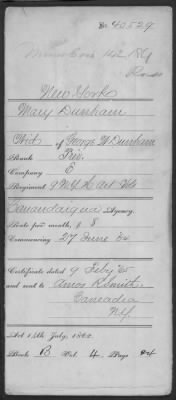 No 40,529
New York
Mary Dunham
Wid. of George W Dunham
Rank Priv.
Company E
Regiment 9 N.Y. H. Art Vols
Canandaigua Agency.
Rate per month, $ 8
Commencing 27 June '64
Certificate dated 9 Feby '65
and sent to Amos R Smith.
Caneadea
N.Y.
Act 14th July, 1862.
Book B Vol. 4. Page 84